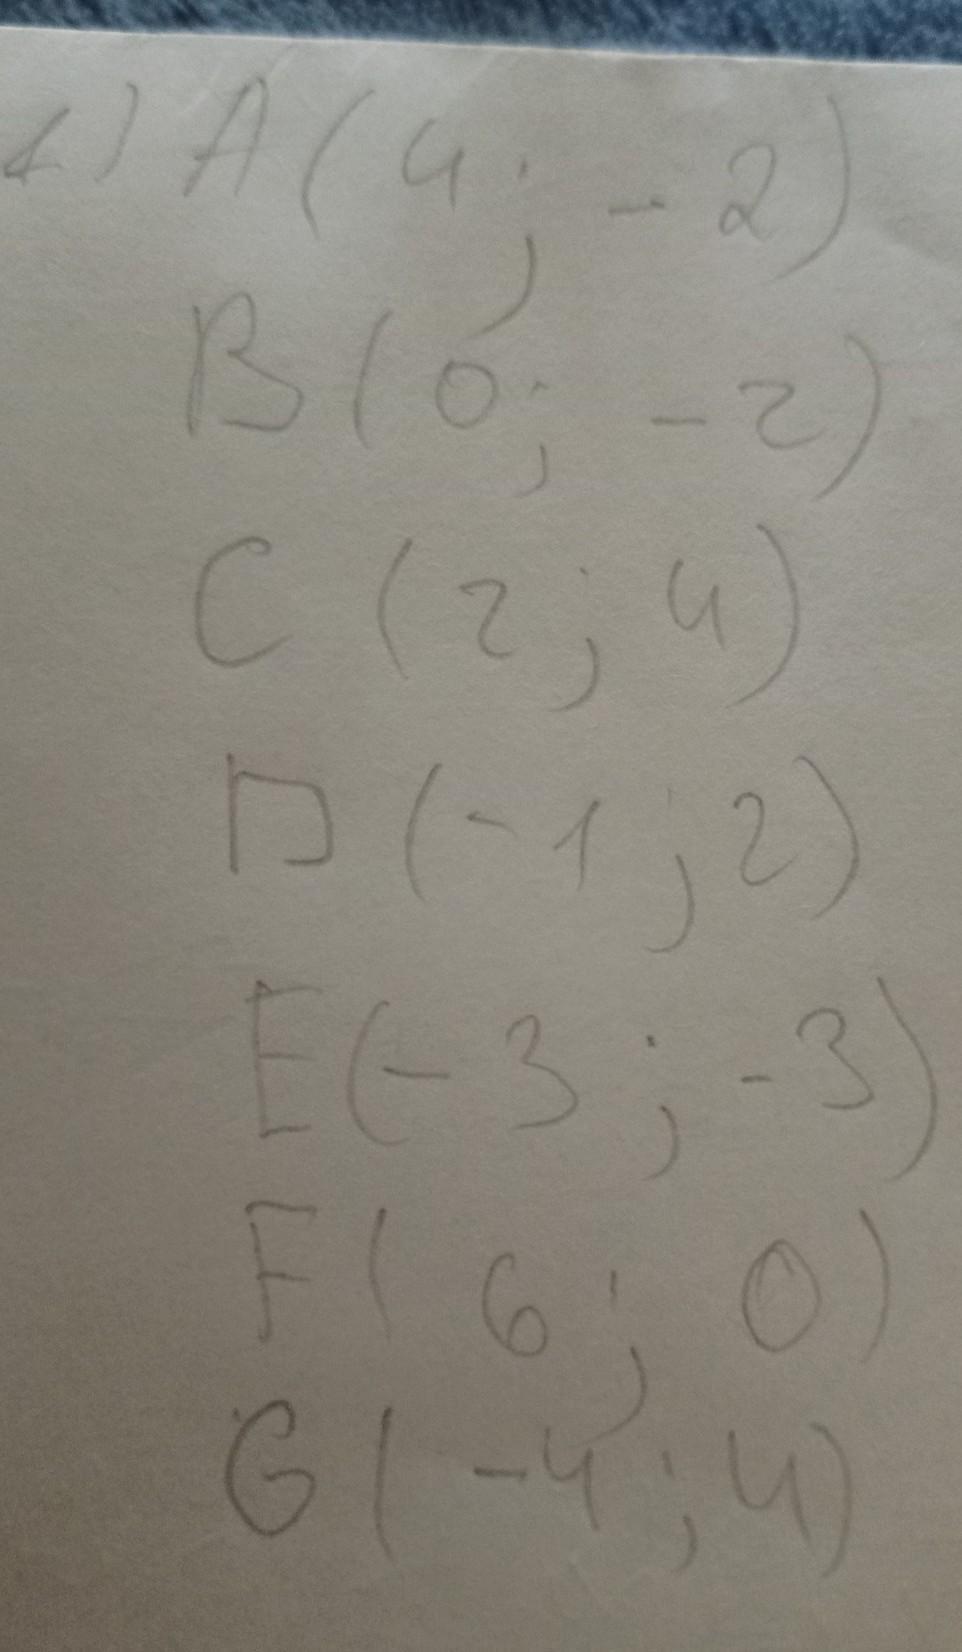 1) A(4; -2)
B(0; -2)
C(2; 4)
D(-1; 2)
E(-3; -3)
F(6; 0)
G(-4; 4)